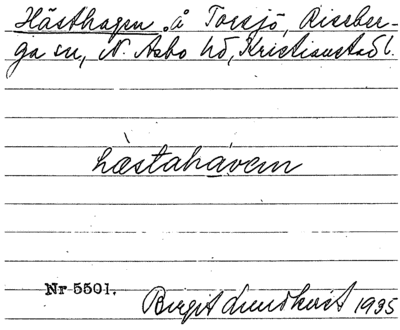 Hästhagen å Torsjö, Riseber-
ga sn, N. Åsbo hd, Kristianstad l.
hæstahávem
Nr 5501.
Birgit Lundkvist 1935